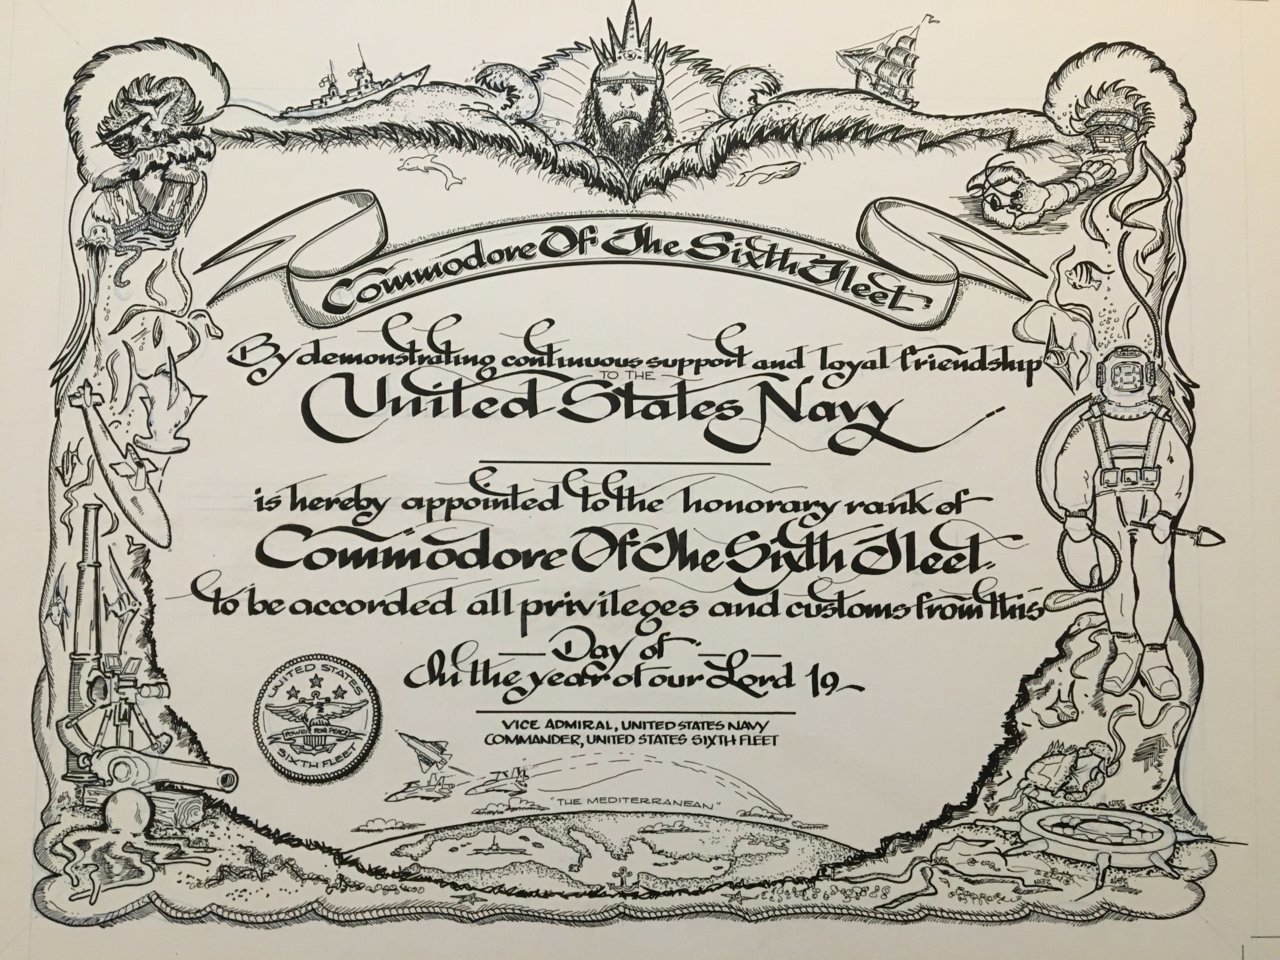 Commodore Of The Sixth Fleet
By demonstrating continuous support and loyal friendship
TO THE
United States Navy
is hereby appointed to the honorary rank of
Commodore Of The Sixth Fleet
to be accorded all privileges and customs from this
Day of
In the year of our Lord 19
UNITED STATES
POWER FOR PEACE
SIXTH FLEET
VICE ADMIRAL, UNITED STATES NAVY
COMMANDER, UNITED STATES SIXTH FLEET
"THE MEDITERRANEAN"